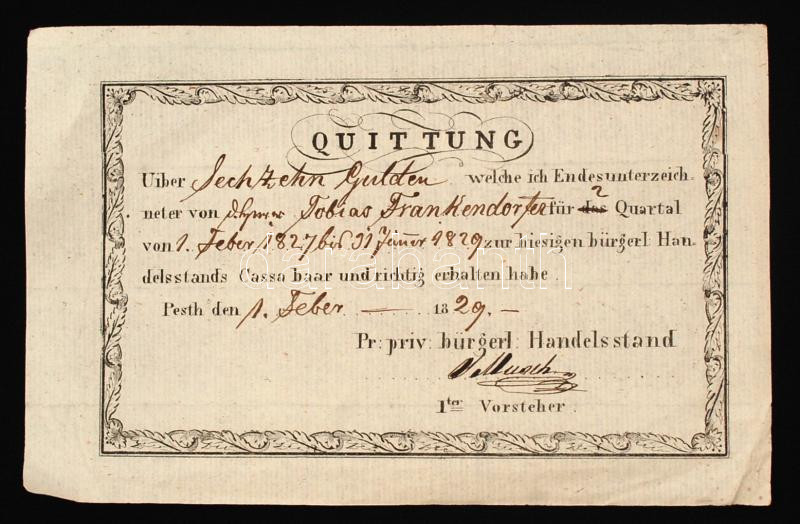 QUITTUNG
Uiber Sechzehn Gulden welche ich Endesunterzeich-
neter von Tobias Frankendorfer für das 2 Quartal
von 1. Feber 1827 bis 31 Jäner 1829 zur hiesigen bürgerl: Han-
delsstands Cassa baar und richtig erhalten habe.
Pesth den 1. Feber — 1829. —
Pr: priv: bürgerl: Handelsstand
1ter Vorsteher.
darabanth